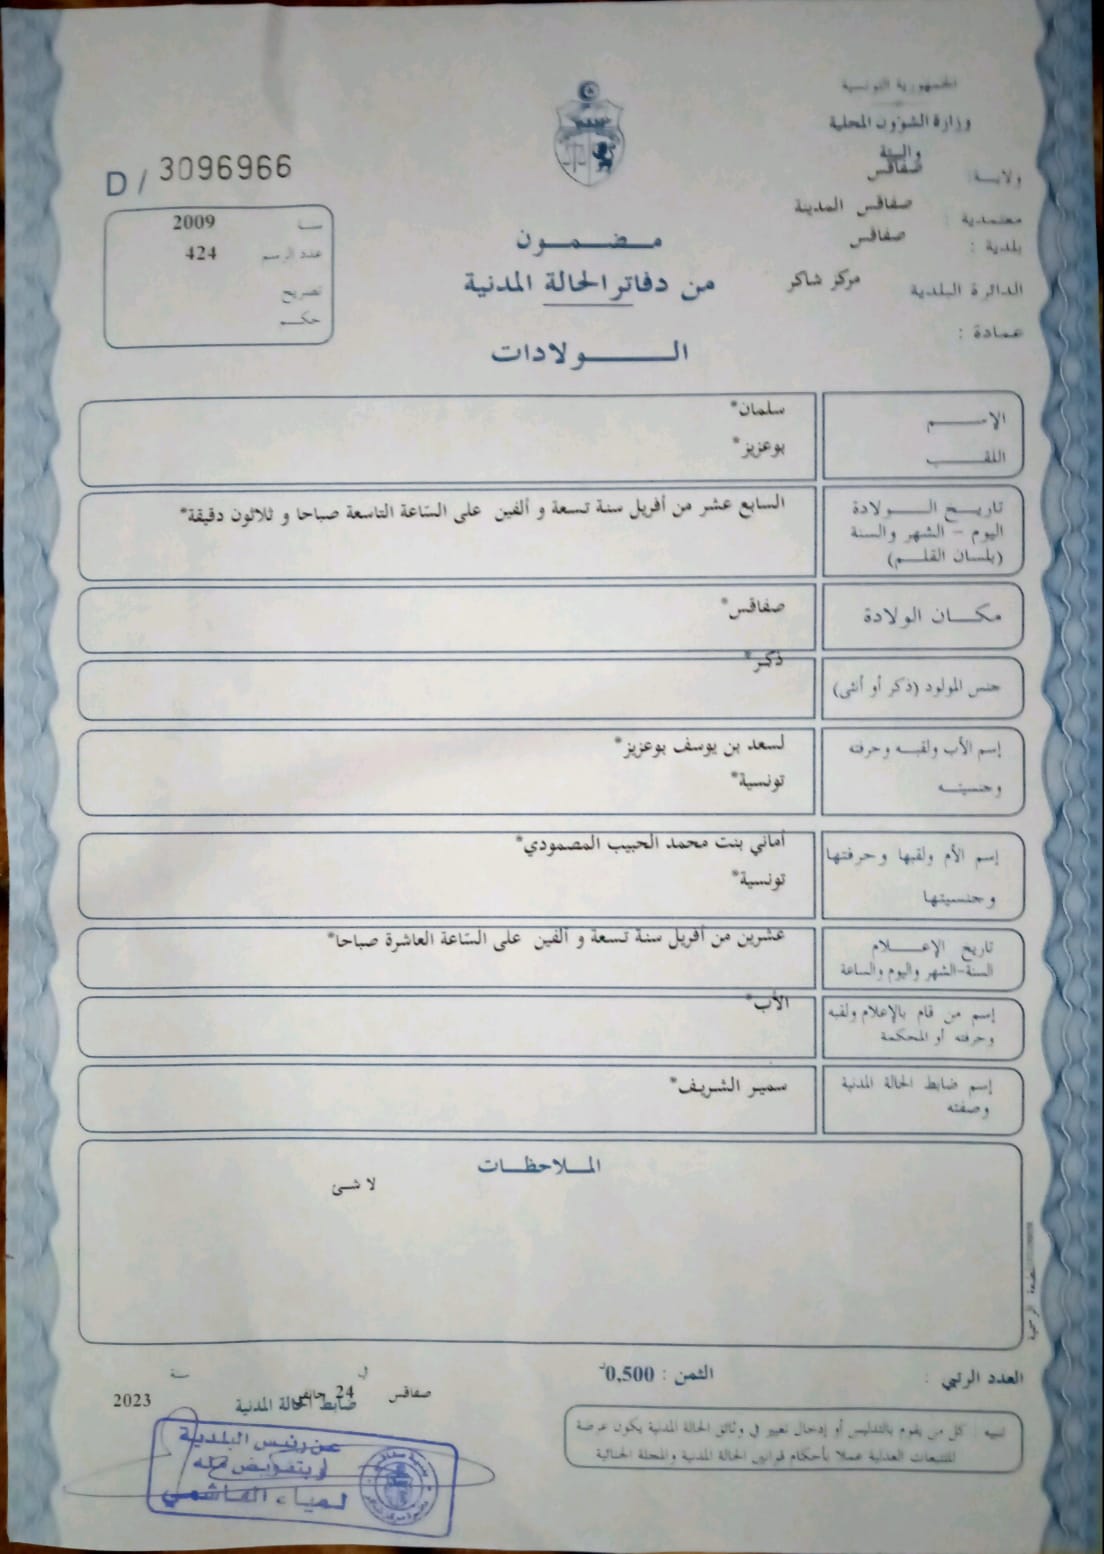 الجمهورية التونسية
وزارة الشؤون المحلية
والبيئة
ولاية: صفاقس
معتمدية : صفاقس المدينة
بلدية : صفاقس
الدائرة البلدية مركز شاكر
عمادة :
D / 3096966
سنة 2009
عدد الرسم 424
تصريح
حكم
مضمون
من دفاتر الحالة المدنية
الولادات
الإسم سلمان*
اللقب بوعزيز*
تاريخ الولادة السابع عشر من أفريل سنة تسعة و ألفين على الساعة التاسعة صباحا و ثلاثون دقيقة*
اليوم - الشهر والسنة
(بلسان القلم)
مكان الولادة صفاقس*
جنس المولود (ذكر أو أنثى) ذكر*
إسم الأب ولقبه وحرفته لسعد بن يوسف بوعزيز*
وجنسيته تونسية*
إسم الأم ولقبها وحرفتها أماني بنت محمد الحبيب المصمودي*
وجنسيتها تونسية*
تاريخ الإعلام عشرين من أفريل سنة تسعة و ألفين على الساعة العاشرة صباحا*
السنة-الشهر واليوم والساعة
إسم من قام بالإعلام ولقبه الأب*
وحرفته أو المحكمة
إسم ضابط الحالة المدنية سمير الشريف*
وصفته
الملاحظات
لا شئ
العدد الرتبي :
الثمن : 0,500د
صفاقس في 24 جانفي سنة 2023
ضابط الحالة المدنية
تنبيه : كل من يقوم بالتدليس أو إدخال تغيير في وثائق الحالة المدنية يكون عرضة
للتتبعات العدلية عملا بأحكام قوانين الحالة المدنية والمجلة الجنائية
عن رئيس البلدية
و بتفويض منه
لمياء الهاشمي